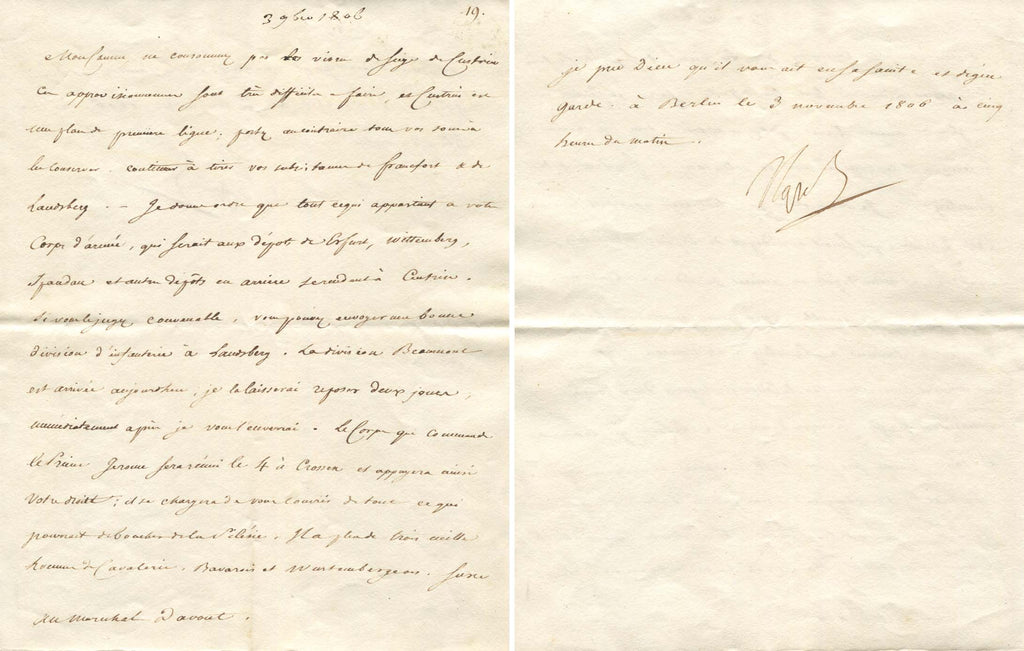 3 9bre 1806
19.
Mon Cousin, ne consommez pas les vivres de siège de Custrin
Ces approvisionnemens sont très difficiles a faire, et Custrin est
une place de première ligne; portez au contraire tous vos soins à
les conserver. continuez à tirer vos subsistances de francfort & de
Landsberg. – Je donne ordre que tout ce qui appartient a votre
Corps d'armée, qui serait aux dépots de Erfurt, Wittemberg,
Spandau et autres dépôts en arrière se rendent à Custrin.
Si vous le jugez convenable, vous pouvez envoyer une bonne
division d'infanterie à Landsberg. La division Beaumont
est arrivée aujourdhui, je la laisserai reposer deux jours,
immédiatement après je vous l'enverrai. Le Corps que commande
le Prince Jerome sera réuni le 4 à Crossen et appuyera ainsi
votre droite; il se chargera de vous couvrir de tout ce qui
pourrait déboucher de la Silésie. Il a plus de trois mille
hommes de Cavalerie, Bavarois et Wurtembergeois. Sur ce
Au Maréchal Davout.
je prie Dieu qu'il vous ait en sa sainte et digne
garde. à Berlin le 3 novembre 1806 à cinq
heures du matin.